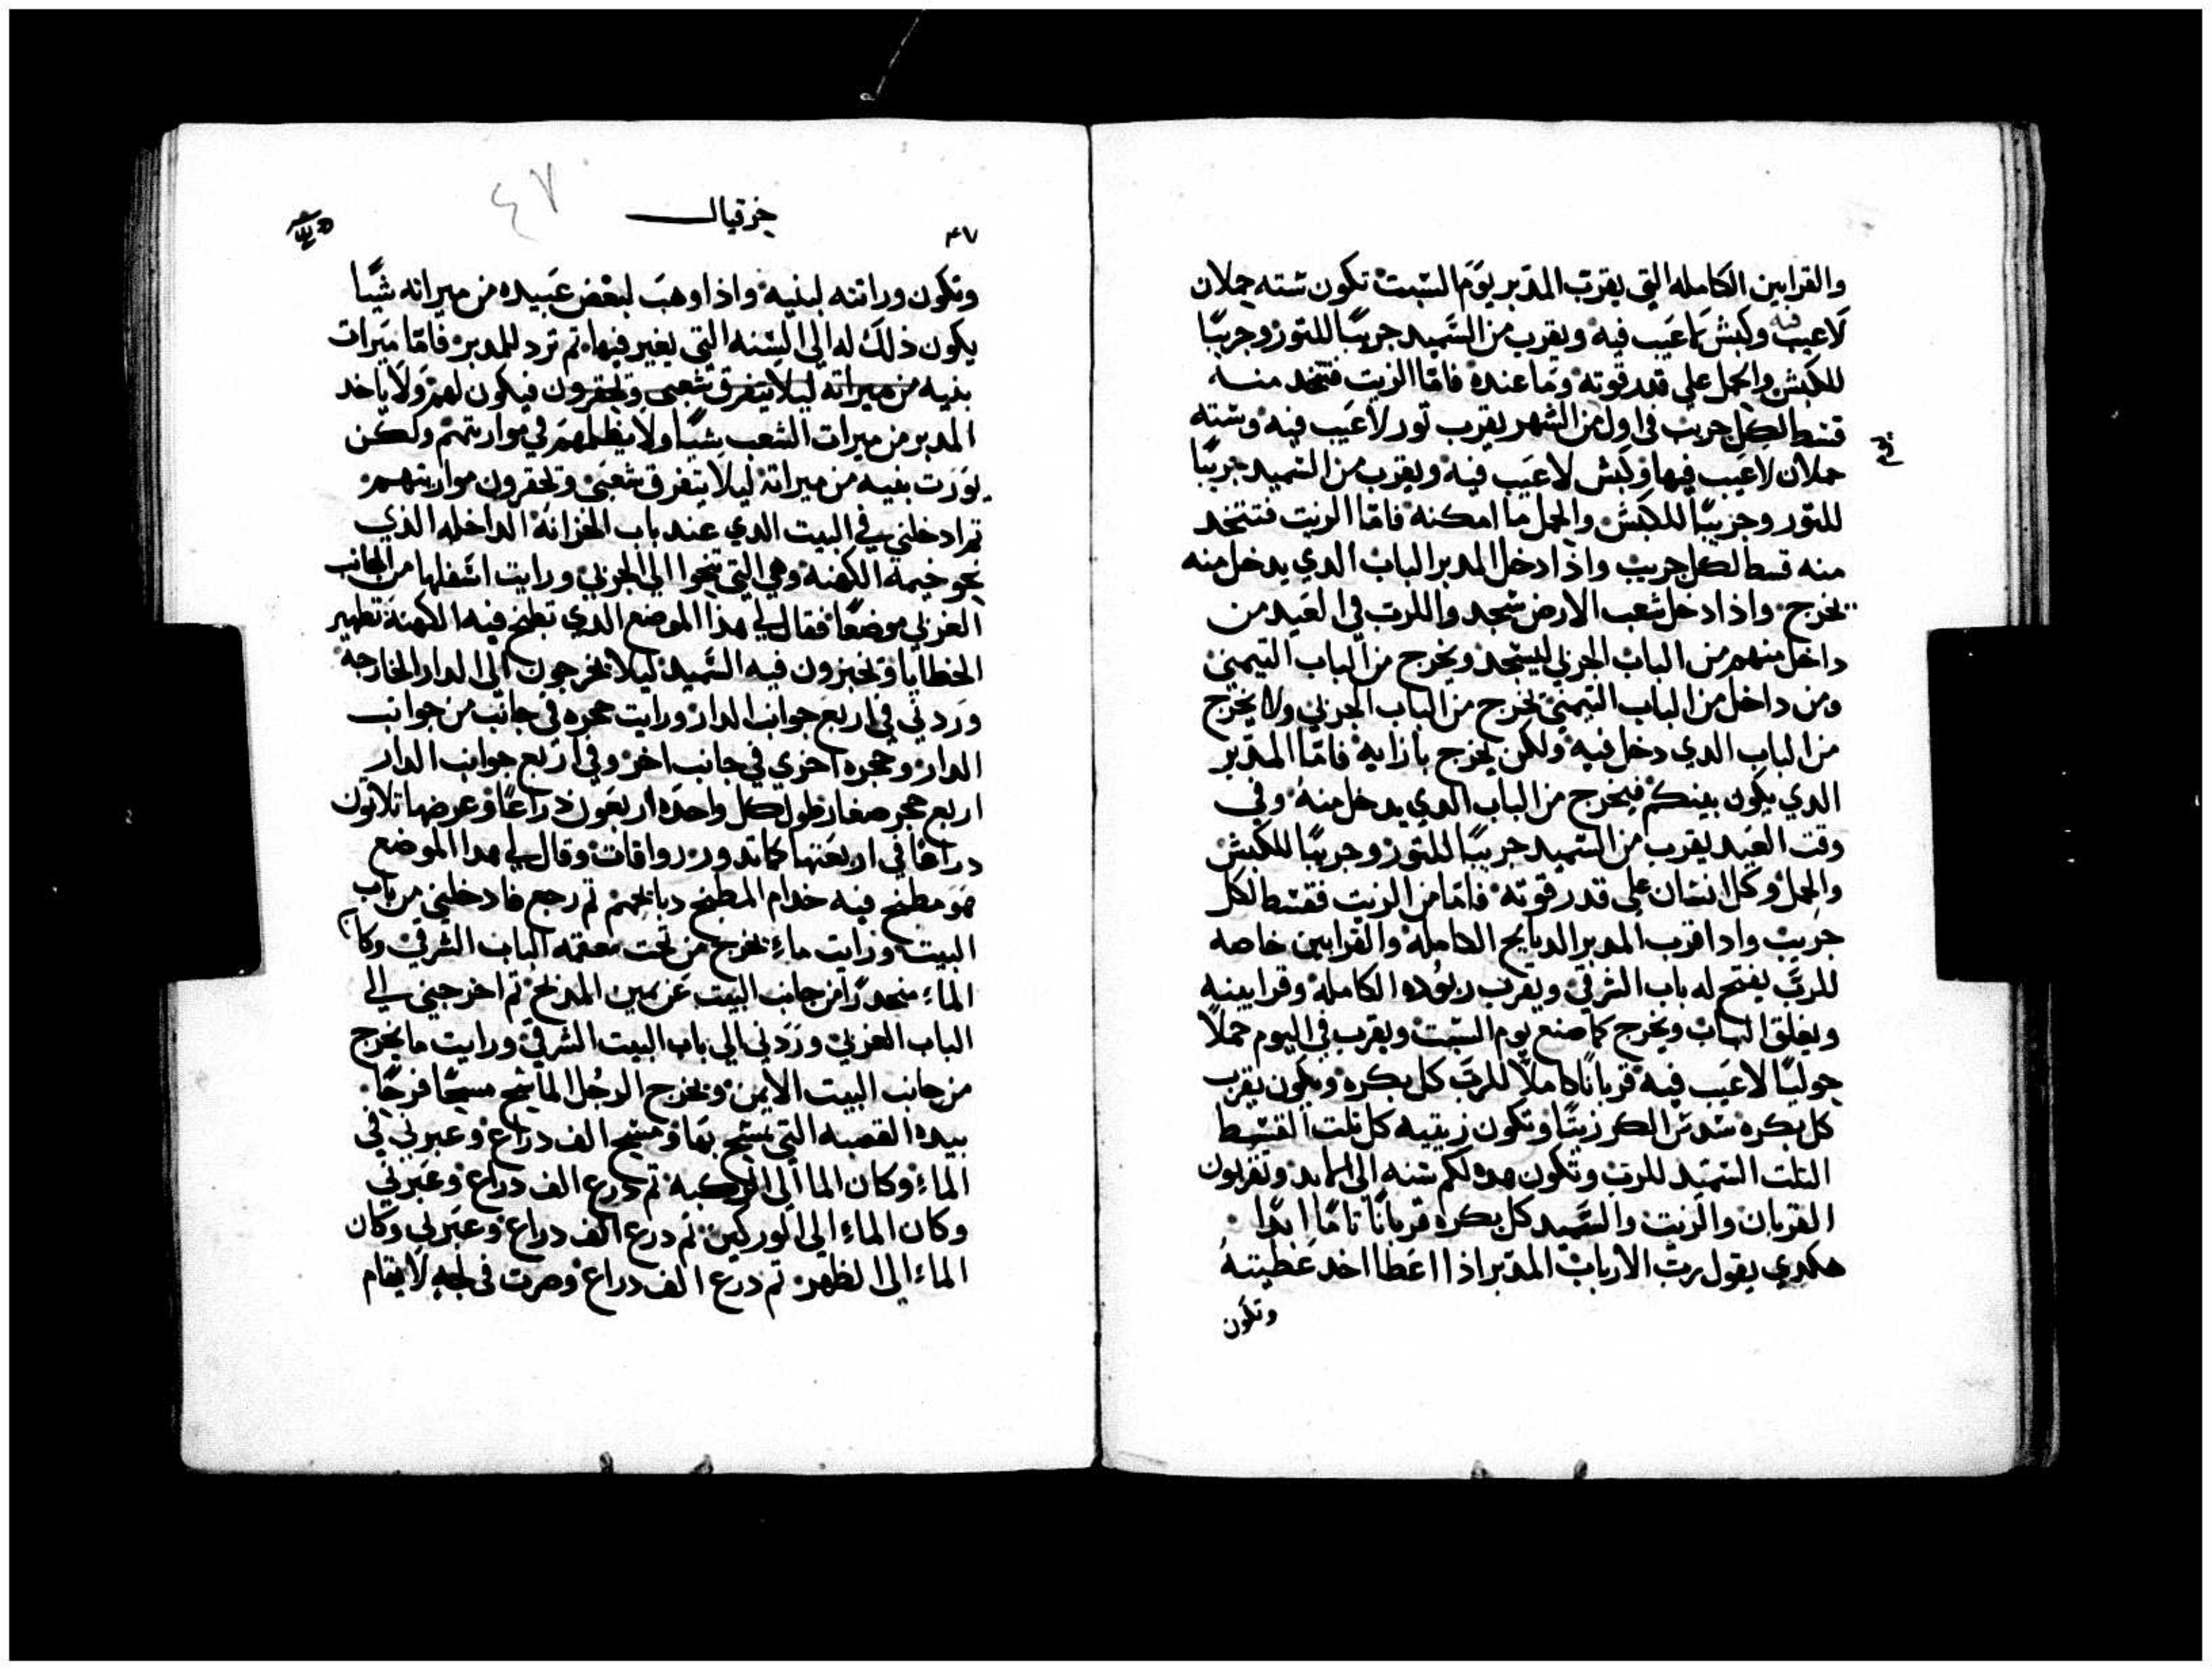 والقرابين الكامله التي يقرب المدبر يوم السبت تكون سته حملان
لاعيب فيه وكبش لاعيب فيه ويقرب من السميد جريبًا للتور وجريبًا
للكبش والحمل على قدر قوته وما عنده فاما الزيت فتتخد منه
قسط لكل جريب في اول من الشهر يقرب تور لاعيب فيه وسته
حملان لاعيب فيها وكبش لاعيب فيه ويقرب من السميد جريبًا
للتور وجريبًا للكبش والحمل ما امكنه فاما الزيت فتتخد
منه قسط لكل جريب واذا دخل المدبر الباب الدي يدخل منه
يخرج واذا دخل شعب الارض سجد واللرب في العيد من
داخل منهم من الباب الجربي ليسجد ويخرج من الباب التيمني
ومن داخل من الباب التيمني يخرج من الباب الجربي ولا يخرج
من الباب الدي دخل فيه ولكن يخرج بازايه فاما المدبر
الدي يكون بينكم فيخرج من الباب الدي يدخل منه وفي
وقت العيد يقرب من السميد جريبًا للتور وجريبًا للكبش
والحمل وكل انسان على قدر قوته فاما من الزيت فقسط لكل
جريب وادا قرب المدبر الدبايح الكامله والقرابين خاصه
للرب يفتح له باب الشرقي ويقرب الكامله وقرابينه
ويغلق الباب ويخرج كما صنع يوم السبت ويقرب في اليوم حملاً
حوليًا لاعيب فيه قربانًا كاملاً للرب كل بكره ويكون يقرب
كل بكره سدس الكر زيتًا وتكون زيتيه كل تلت القسط
التلت السميد للرب وتكون هده لكم سنه الى الابد وتقربون
القربان والزيت والسميد كل بكره قربانًا تامًا ابدًا
هكدي يقول رب الارباب المدبر اذا اعطا احد عطيته
وتكون
خزقيال
٤٧
٤٧
وتكون وراتته لبنيه واذا وهب لبعض عبيده من ميراته شيًا
يكون ذلك له الى السنه التي يغير فيها تم ترد للمدبر فاما ميرات
بنيه من ميراته ليلا يتفرق شعبي ويحقرون فيكون لهم ولا ياخد
المدبر من ميرات الشعب شيًا ولا يظلمهم في مواريتهم ولكن
يورت بنيه من ميراته ليلا يتفرق شعبي ويحقرون مواريتهم
تم ادخلني في البيت الدي عند باب الخزانه الداخله الذي
نحو خيمة الكهنه وهي التي تنحوا الى الجربي ورايت اسفلها من الجانب
الغربي موضعًا فقال لي هذا الموضع الدي تطبخ فيه الكهنة تطهير
الخطايا ويخبزون فيه السميد ليلا يخرجون الى الدار الخارجه
وردني في اربع جوانب الدار ورايت حجره في جانب من جوانب
الدار وحجره اخري في جانب اخر وفي اربع جوانب الدار
اربع حجر صغار طول كل واحده اربعون ذراعًا وعرضها تلاتون
دراعًا في اربعتها كما تدور رواقات وقال لي هدا الموضع
هو مطبخ فيه خدام المطبخ دبايحهم تم رجع فادخلني من باب
البيت ورايت ماء يخرج من تحت الباب الشرقي وكان
الماء منحدرًا من جانب البيت عن يمين المدبح تم اخرجني الى
الباب الغربي وردني الى باب البيت الشرقي ورايت ما يخرج
من جانب البيت الايمن ويخرج الرجل الماسح
بيده القصبه التي يمسح بها ومسح الف دراع وعبرني في
الماء وكان الما الى الركبه تم درع الف دراع وعبرني
وكان الماء الى الوركين تم درع الف دراع وعبرني وكان
الماء الى الظهر تم درع الف دراع وصرت في لجه لا يقام